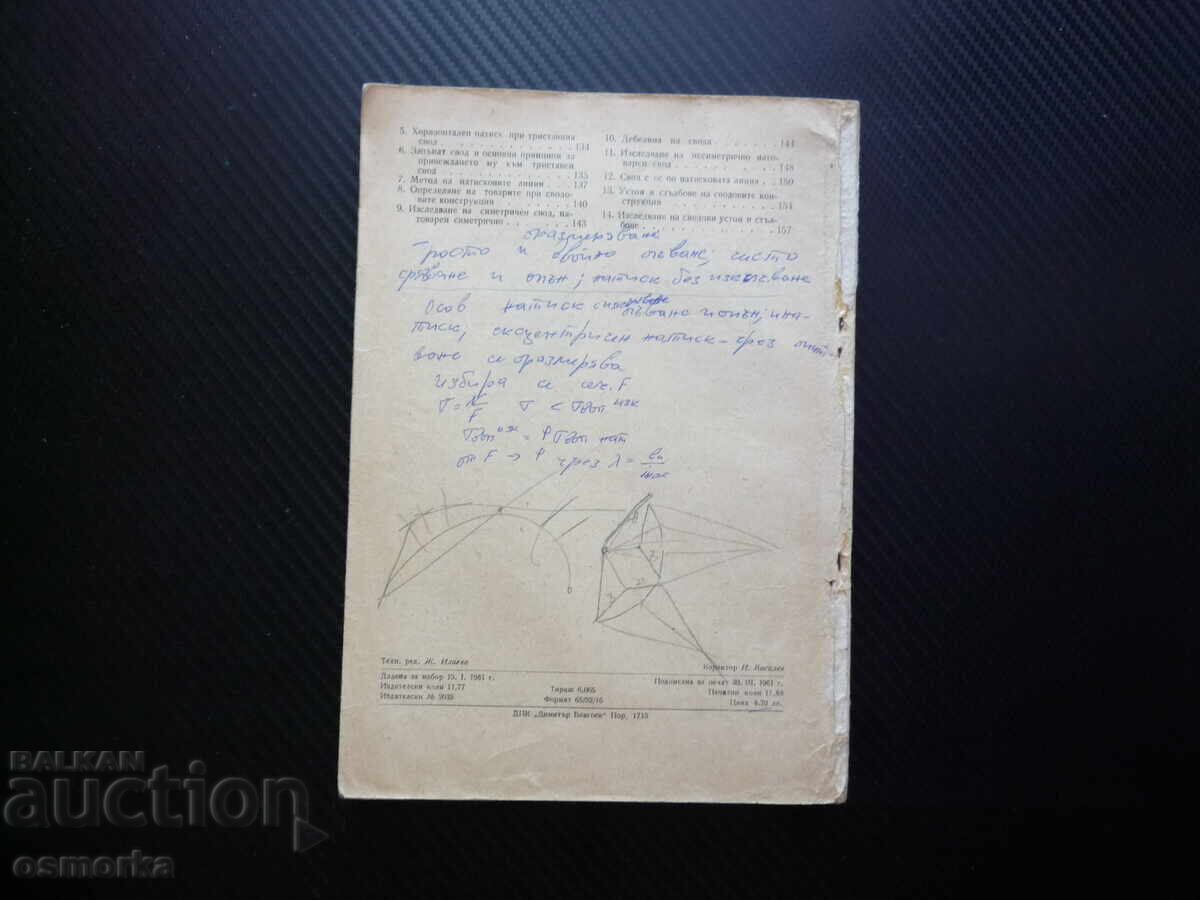 5. Хоризонтален натиск при триставния
свод . . . . . . . . . . . . . 134
6. Запънат свод и основни принципи за
привеждането му към триставен
свод . . . . . . . . . . . . . 135
7. Метод на натисковите линии . . . 137
8. Определяне на товарите при сводо-
вите конструкции . . . . . . . 140
9. Изследване на симетричен свод, на-
товарен симетрично . . . . . . . 143
10. Дебелина на свода . . . . . . . 144
11. Изследване на несиметрично нато-
варен свод . . . . . . . . . . . 148
12. Свод с ос по натисковата линия . . 150
13. Устои и сглъбове на сводовите кон-
струкции . . . . . . . . . . . . 151
14. Изследване на сводови устои и сглъ-
бове . . . . . . . . . . . . . . 157
оразмеряване
Просто и двойно огъване; чисто
срязване и опън; натиск без изкълчване
Осов натиск
огъване и опън; и на-
тиск, ексцентричен натиск - чрез
ване се оразмерява
избира се сеч. F
от F → φ чрез λ =
Техн. ред. Ж. Илиева
Коректор Н. Василев
Дадена за набор 15. I. 1961 г.
Издателски коли 11,77
Тираж 6,065
Формат 65/92/16
Подписана за печат 30. III. 1961 г.
Цена 4.70 лв.
ДПК „Димитър Благоев“ Пор. 1715
BALKAN
auction
osmorka